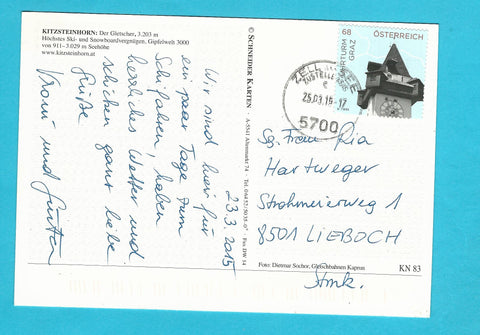 KITZSTEINHORN: Der Gletscher, 3.203 m
Höchstes Ski- und Snowboardvergnügen. Gipfelwelt 3000
von 911 - 3.029 m Seehöhe
www.kitzsteinhorn.at
23.3.2015
Wir sind hier für
ein paar Tage zum
Schifahren, haben
herrliches Wetter und
schicken ganz liebe
Grüße
und Günter
© SCHNEIDER KARTEN · A-5541 Altenmarkt 74 · Tel. 0 64 52/50 35-0* Fax DW 34
68
ÖSTERREICH
UHRTURM GRAZ
ZELL AM SEE
25.03.15-17
5700
Sg. Frau Pia
Hartweger
Strohmeierweg 1
8501 LIEBOCH
Stmk.
Foto: Dietmar Sochor, Gletscherbahnen Kaprun
KN 83